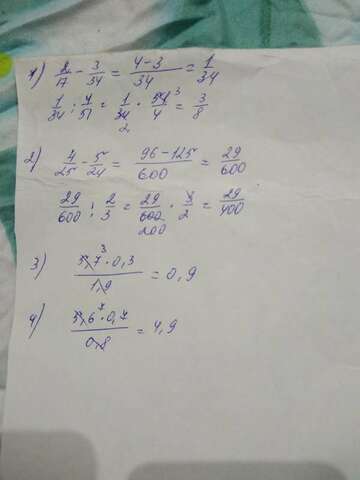 1) 2/17 - 3/34 = (4-3)/34 = 1/34
1/34 : 4/51 = 1/34 · 51/4 = 3/8
2 3
2) 4/25 - 5/24 = (96-125)/600 = 29/600
29/600 : 2/3 = 29/600 · 3/2 = 29/400
200
3) (5,7 · 0,3)/1,9 = 0,9
3
4) (5,6 · 0,7)/0,8 = 4,9
7